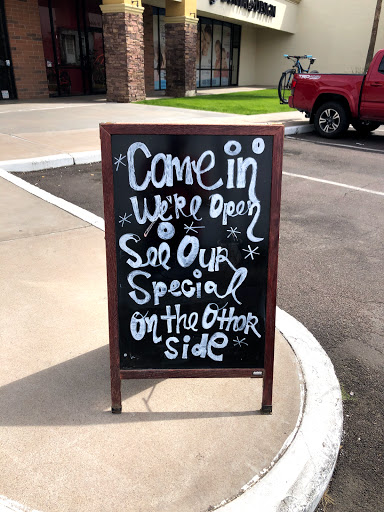 Come in'
We're Open
See Our
Special
on the Other
side